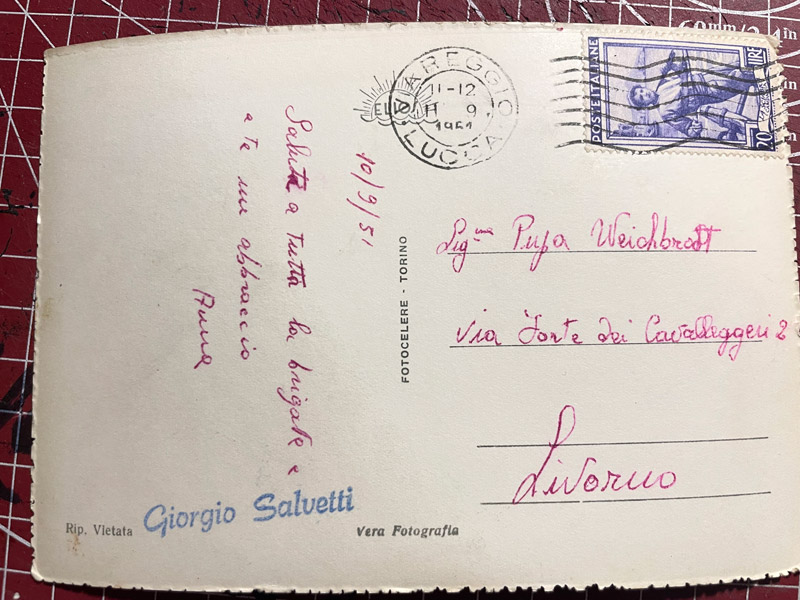 10/9/51
Saluta a tutta la brigata e
a te un abbraccio
Anna
VIAREGGIO
11-12
11 9
1951
LUCCA
POSTE ITALIANE
LIRE
20
Sig.na Pupa Weichbrodt
Via Forte dei Cavalleggeri 2
Livorno
FOTOCELERE - TORINO
Rip. Vietata
Giorgio Salvetti
Vera Fotografia